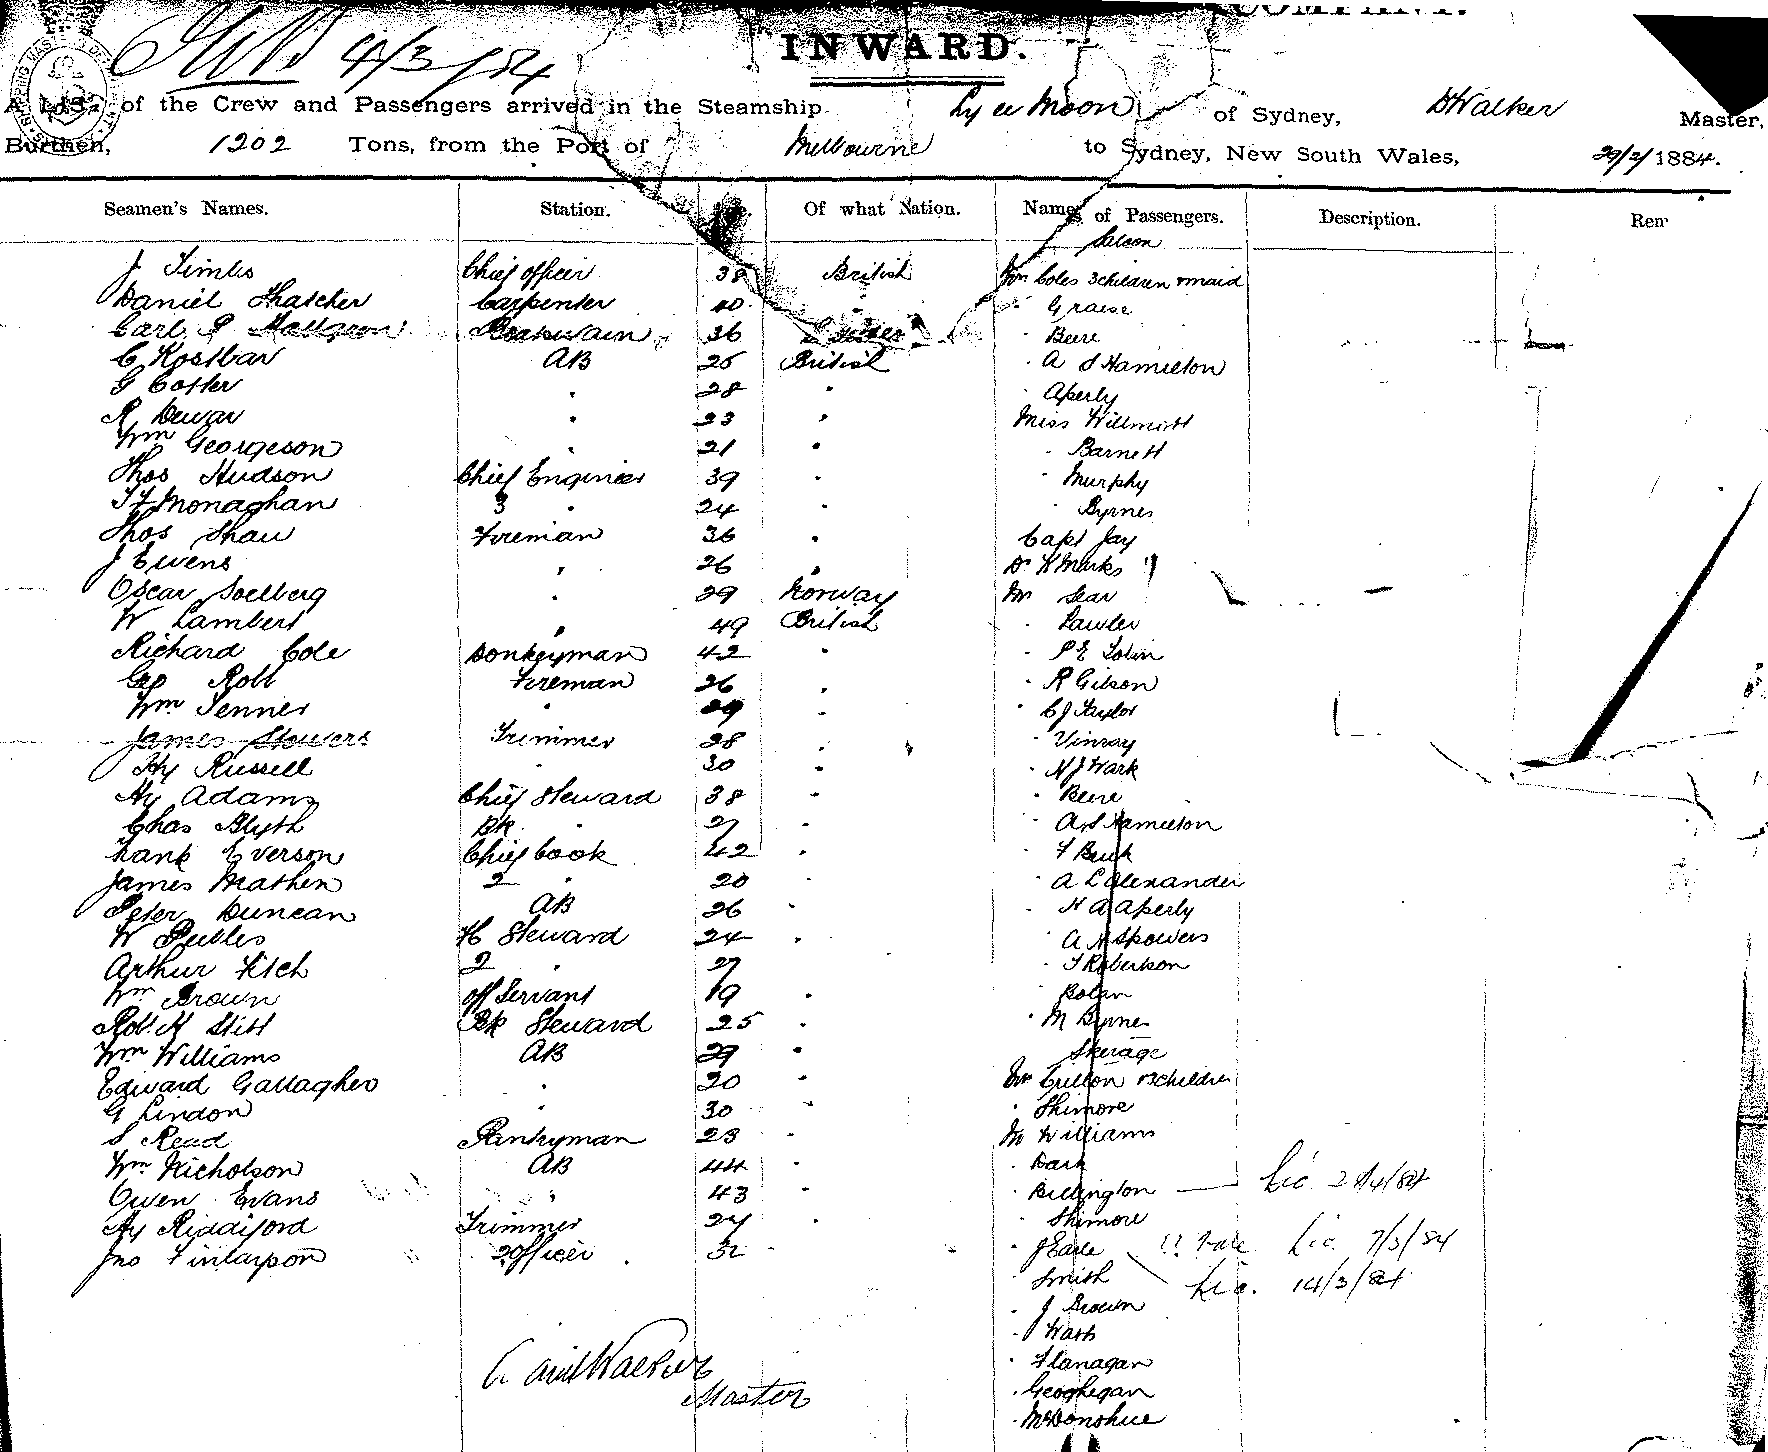 4/3/84
INWARD.
A List of the Crew and Passengers arrived in the Steamship Ly ee Moon of Sydney, D Walker Master,
Burthen, 1202 Tons, from the Port of Melbourne to Sydney, New South Wales, 29/2/1884.
Seamen's Names. Station. Of what Nation. Names of Passengers. Description.
Saloon
J Timbs Chief officer 38 British Mrs Coles 3 children & maid
Daniel Thatcher Carpenter 40 " " Graese
Carl P Boatswain 36 " Beere
C Kostbar AB 25 British " A S Hamilton
G Coster " 28 " " Aperly
R Dewar " 23 " Miss Willmott
Wm Georgeson " 21 " " Barnett
Thos Hudson Chief Engineer 39 " " Murphy
T F Monaghan 3 " 24 " " Byrnes
Thos Shaw Fireman 36 " Capt Jay
J Ewens " 26 " Dr K Marks
Oscar Soelberg " 29 Norway Mr Sear
W Lambert " 49 British " Lawler
Richard Cole Donkeyman 42 " " P E Tobin
Geo Robb Fireman 26 " " R Gibson
Wm Jenner " 29 " " C J Taylor
James Stowers Trimmer 28 " " Vinray
Hy Russell " 30 " " N J Wark
Hy Adams Chief Steward 38 " " Beere
Chas Blyth Bk " 27 " " A S Hamilton
Frank Everson Chief Cook 42 " " F Buck
James Mathen 2 " 20 " " A L Alexander
Peter Duncan AB 26 " " H A Aperly
W Peebles F C Steward 24 " " A H Spowers
Arthur Fitch 2 " 27 " T Robertson
Wm Brown off Servant 19 " " Bolan
Robt H Stitt Bk Steward 25 " " M Byrne
Wm Williams AB 29 " Steerage
Edward Gallagher " 20 " Mrs Cullen & 3 children
G Lindon " 30 " " Shimore
S Read Pantryman 23 " Mr Williams
Wm Nicholson AB 44 " " Dark
Owen Evans " 43 " Billington — Lic 28/4/84
Hy Riddiford Trimmer 24 " " Shimore
Jno Finlayson 2 Officer 32 " " J Earle Lic 7/3/84
" Smith Lic. 14/3/84
" J Brown
" Wash
" Flanagan
" Geoghegan
" McDonohue
David Walker
Master